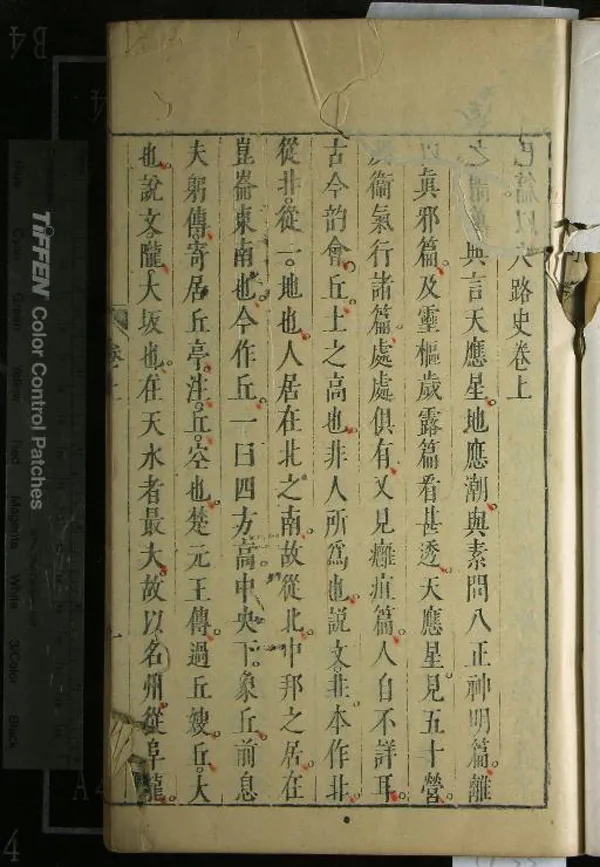 六路史卷上
之 與言天應星地應潮與素問八正神明篇離
眞邪篇及靈樞歲露篇看甚透天應星見五十營
衞氣行諸篇處處俱有又見癰疽篇人自不詳耳
古今韵會丘土之高也非人所爲也說文㐀本作北
從北從一地也人居在北之南故從北中邦之居在
崑崙東南也今作丘一曰四方高中央下象丘前息
夫躬傳寄居丘亭注丘空也楚元王傳過丘嫂丘大
也說文隴大坂也在天水者最大故以名州從阜龍
卷上
TIFFEN Color Control Patches
Cyan Green Yellow Red Magenta White 3/Color Black
B4
A4
4